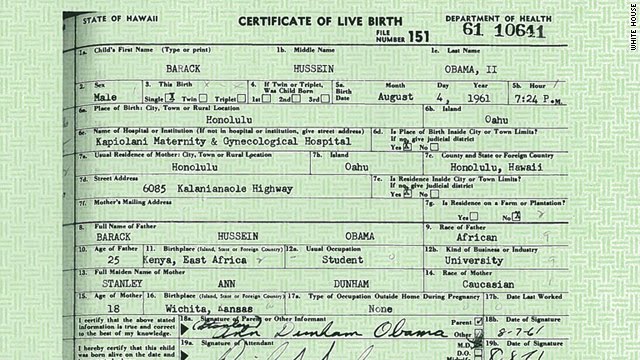 STATE OF HAWAII CERTIFICATE OF LIVE BIRTH DEPARTMENT OF HEALTH
FILE NUMBER 151 61 10641
1a. Child's First Name (Type or print) 1b. Middle Name 1c. Last Name
BARACK HUSSEIN OBAMA, II
2. Sex 3. This Birth 4. If Twin or Triplet, Was Child Born 5a. Birth Date Month Day Year 5b. Hour
Male Single X Twin Triplet 1st 2nd 3rd August 4, 1961 7:24 P.M.
6a. Place of Birth: City, Town or Rural Location 6b. Island
Honolulu Oahu
6c. Name of Hospital or Institution (If not in hospital or institution, give street address) 6d. Is Place of Birth Inside City or Town Limits? If no, give judicial district
Kapiolani Maternity & Gynecological Hospital Yes X No
7a. Usual Residence of Mother: City, Town or Rural Location 7b. Island 7c. County and State or Foreign Country
Honolulu Oahu Honolulu, Hawaii
7d. Street Address 7e. Is Residence Inside City or Town Limits? If no, give judicial district
6085 Kalanianaole Highway Yes X No
7f. Mother's Mailing Address 7g. Is Residence on a Farm or Plantation?
Yes No X
8. Full Name of Father 9. Race of Father
BARACK HUSSEIN OBAMA African
10. Age of Father 11. Birthplace (Island, State or Foreign Country) 12a. Usual Occupation 12b. Kind of Business or Industry
25 Kenya, East Africa Student University
13. Full Maiden Name of Mother 14. Race of Mother
STANLEY ANN DUNHAM Caucasian
15. Age of Mother 16. Birthplace (Island, State or Foreign Country) 17a. Type of Occupation Outside Home During Pregnancy 17b. Date Last Worked
18 Wichita, Kansas None
I certify that the above stated information is true and correct to the best of my knowledge. 18a. Signature of Parent or Other Informant Parent Other 18b. Date of Signature
(Stanley) Ann Dunham Obama 8-7-61
I hereby certify that this child was born alive on the date and 19a. Signature of Attendant M.D. 19b. Date of Signature
WHITE HOUSE